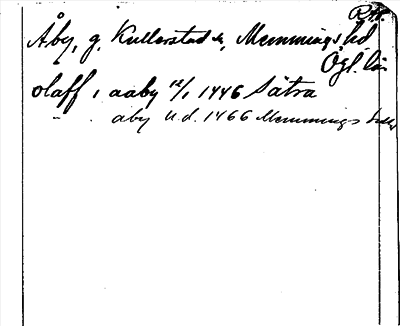 R.A.
Åby, g. Kullerstad sn, Memmings hd
Ögl. län
olaff i aaby 12/1 1446 Sätra
" aby u.d. 1466 Memmings